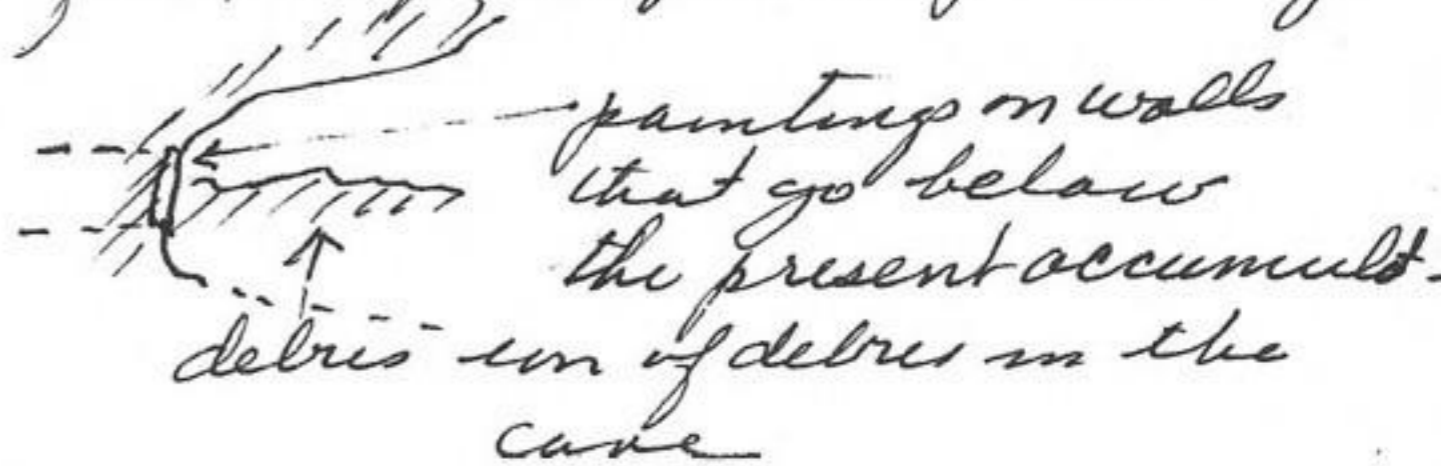 paintings on walls
that go below
the present accumulat-
debris ion of debris in the
cave